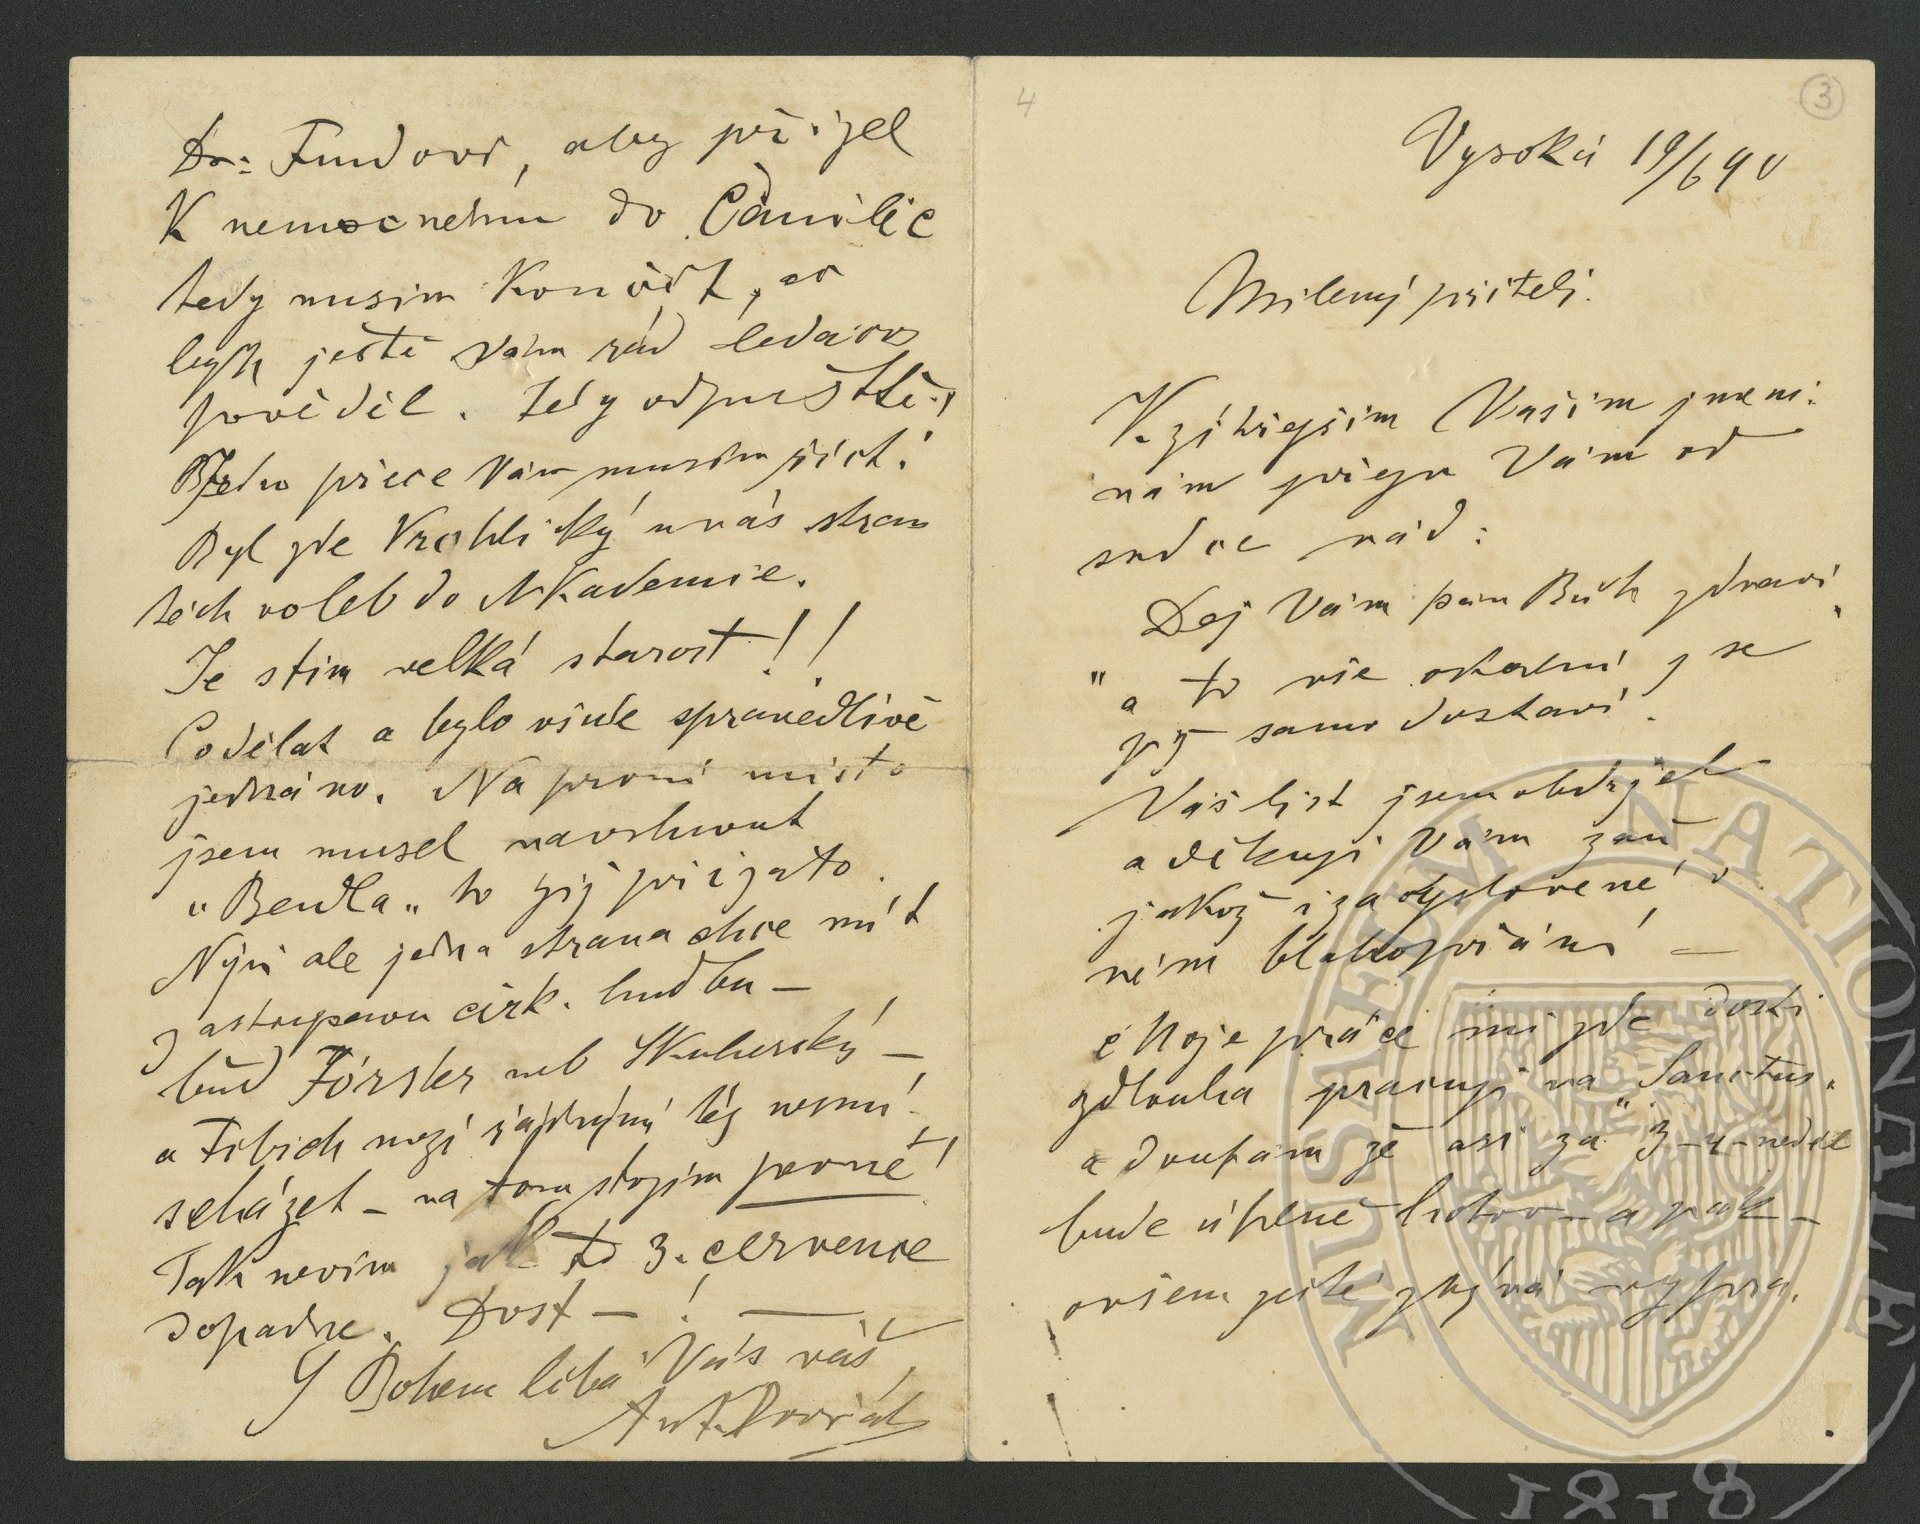 4
3
Vysoká 19/6 90
Milený příteli.
K zítřejším Vaším jmeni-
nám přeju Vám od
srdce rád:
Dej Vám pán Bůh zdraví
a to vše ostatní se
již samo dostaví.
Váš list jsem obdržel
a děkuji Vám zaň
jakož i za vyslovené
ném blahopřání —
Moje práce mi jde dosti
zdlouha pracuji na "Sanctus"
a doufám že asi za 3–4 neděl
bude úplně hotov — a pak —
ovšem ještě zbývá
Dr: Fundovi, aby přijel
K nemocnému do Čámilic
tedy musím Končit, ač
bych ještě Vám rád ledacos
pověděl. Tedy odpusťte!
Jedno přece Vám musím říct:
Byl zde Vrchlický u nás stran
těch voleb do Akademie.
Je stim velká starost!!
Co dělat a bylo všude spravedlivě
jednáno. Na první místo
jsem musel navrhnout
"Bendla" to již přijato.
Nyní ale jedna strana chce mít
zastoupenou cirk. hudbu —
buď Förster neb Skuherský —
a Fibich mezi řádnými též nesmí
scházet — na tom stojím pevně!
Tak nevím jak to 3. července
dopadne. Dost — ! —
S Bohem líbá Vás váš
Ant. Dvořák
MUSAEUM NATIONALE
1818